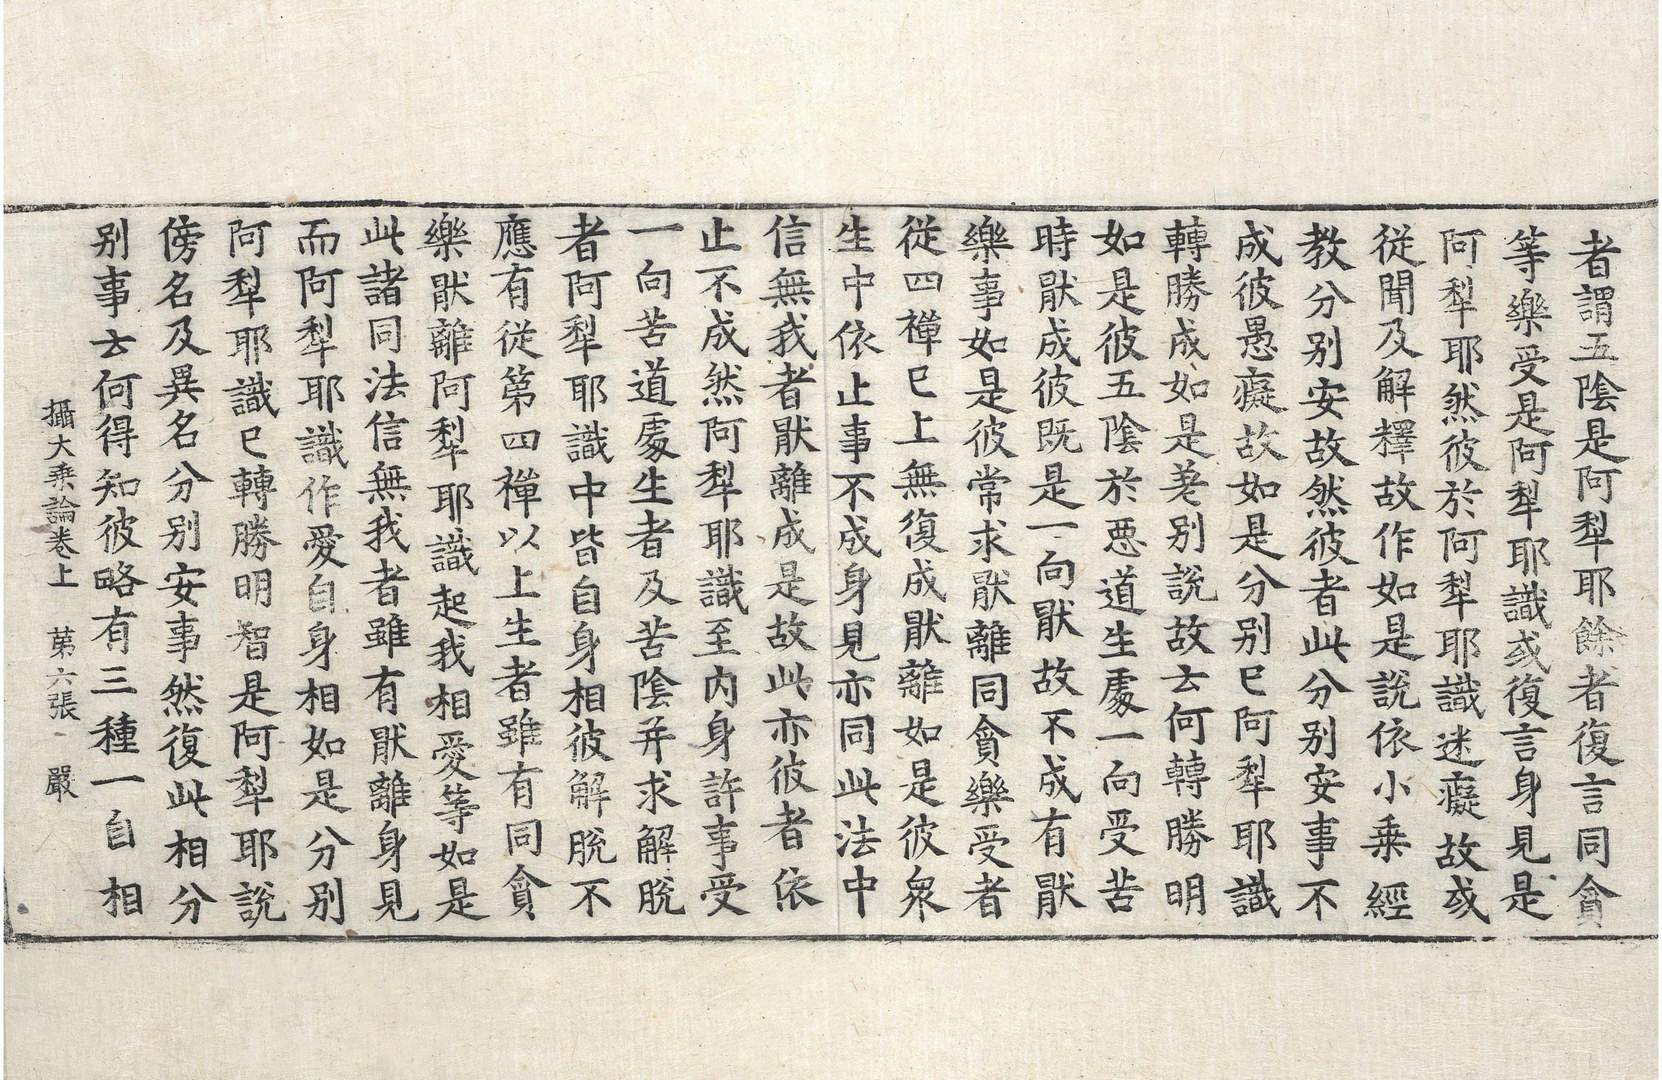 者謂五陰是阿犁耶餘者復言同貪
等樂受是阿犁耶識或復言身見是
阿犁耶然彼於阿犁耶識迷癡故或
從聞及解釋故作如是說依小乗經
教分別安故然彼者此分別安事不
成彼愚癡故如是分別已阿犁耶識
轉勝成如是差別說故云何轉勝明
如是彼五陰於惡道生處一向受苦
時猒成彼既是一向猒故不成有猒
樂事如是彼常求猒離同貪樂受者
從四禪已上無復成猒離如是彼衆
生中依止事不成身見亦同此法中
信無我者猒離成是故此亦彼者依
止不成然阿犁耶識至内身許事受
一向苦道處生者及苦陰并求解脫
者阿犁耶識中皆自身相彼解脫不
應有從第四禪以上生者雖有同貪
樂猒離阿犁耶識起我相愛等如是
此諸同法信無我者雖有猒離身見
而阿犁耶識作愛自身相如是分別
阿犁耶識已轉勝明智是阿犁耶說
傍名及異名分別安事然復此相分
別事云何得知彼略有三種一自相
攝大乗論卷上　第六張　嚴